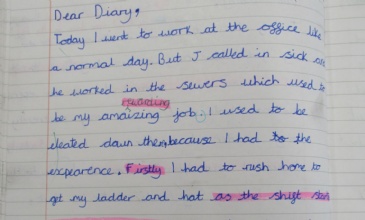 Dear Diary,
Today I went to work at the office like
a normal day. But J called in sick
he worked in the sewers which used to
rewarding
be my amaizing job. I used to be
down because I had to the
expearence. Firstly I had to rush home to
get my ladder and hat as the shift